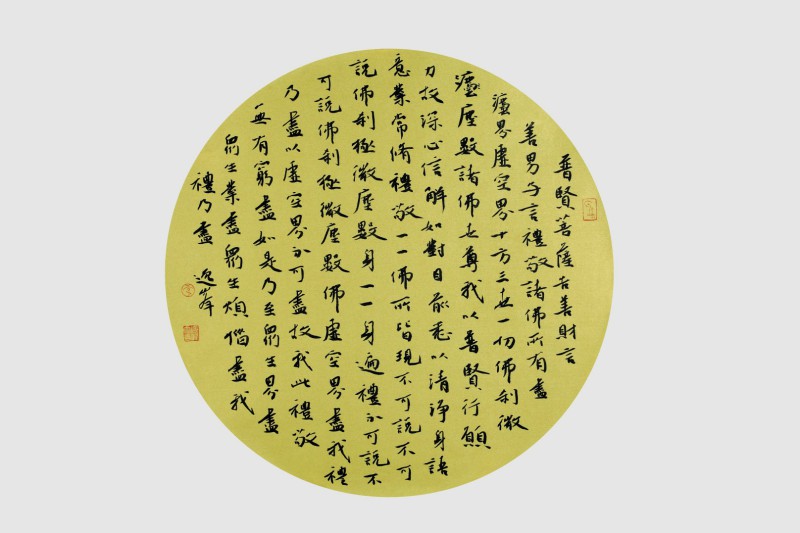 普賢菩薩告善財言
善男子言禮敬諸佛所有盡
界虛空界十方三世一切佛刹微
塵數諸佛世尊我以普賢行願
力故深心信解如對目前悉以清淨身語
意業常脩禮敬一一佛所皆現不可說不可
說佛刹極微塵數身一一身遍禮不可說不
可說佛刹極微塵數佛虛空界盡我禮
乃盡以虛空界不可盡故我此禮敬
無有窮盡如是乃至眾生界盡
眾生業盡眾生煩惱盡我
禮乃盡 逸峯